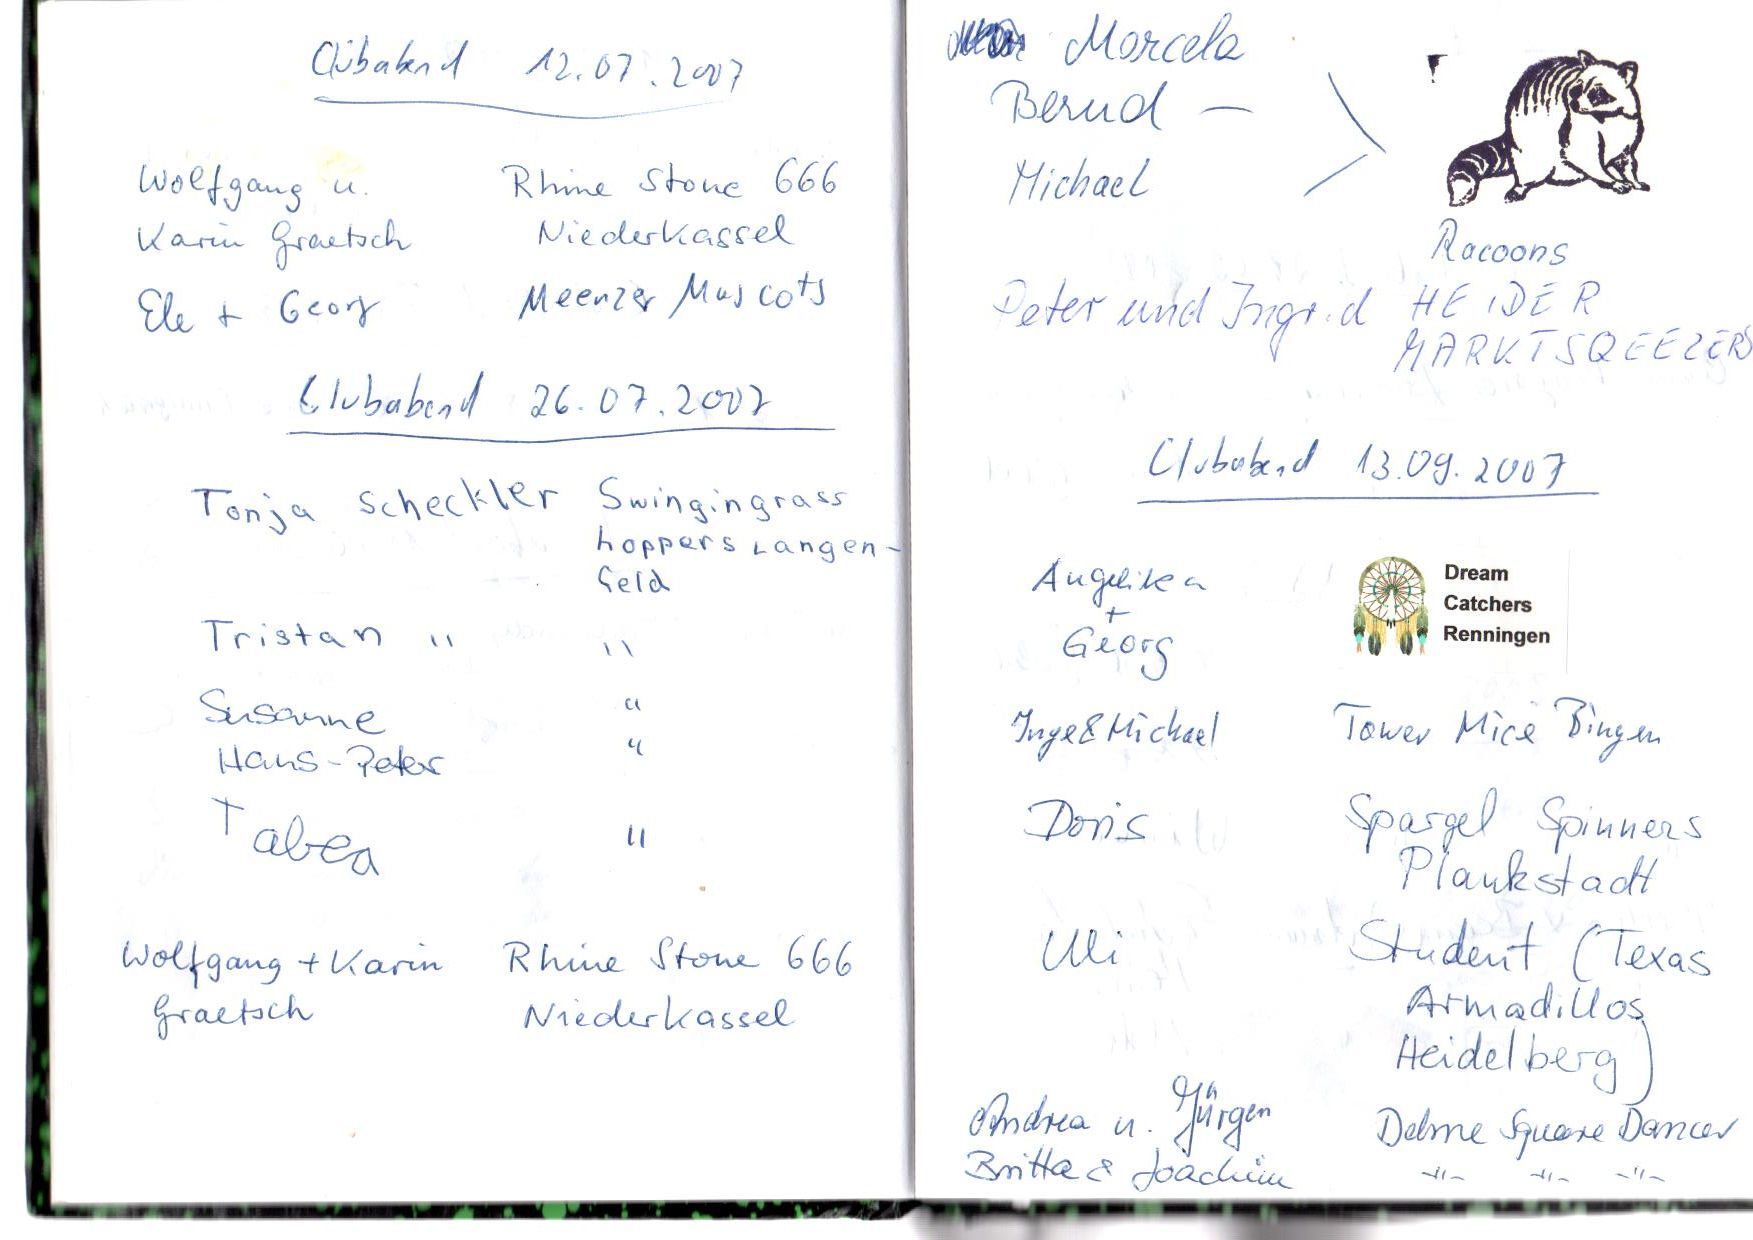 Clubabend 12.07.2007
Wolfgang u. Rhine Stone 666
Karin Graetsch Niederkassel
Ele + Georg Meenzer Mascots
Clubabend 26.07.2007
Tonja Scheckler Swingingrass
hoppers Langen-
feld
Tristan " "
Susanne "
Hans-Peter "
Tabea "
Wolfgang + Karin Rhine Stone 666
Graetsch Niederkassel
Marcela
Bernd —
Michael
Racoons
Peter und Ingrid HEIDER
MARKTSQEEZERS
Clubabend 13.09.2007
Angelika
+
Georg
Dream
Catchers
Renningen
Inge & Michael Tower Mice Bingen
Doris Spargel Spinners
Plankstadt
Uli Student (Texas
Armadillos
Heidelberg)
Andrea u. Jürgen Delme Square Dancer
Britta & Joachim -"- -"- -"-